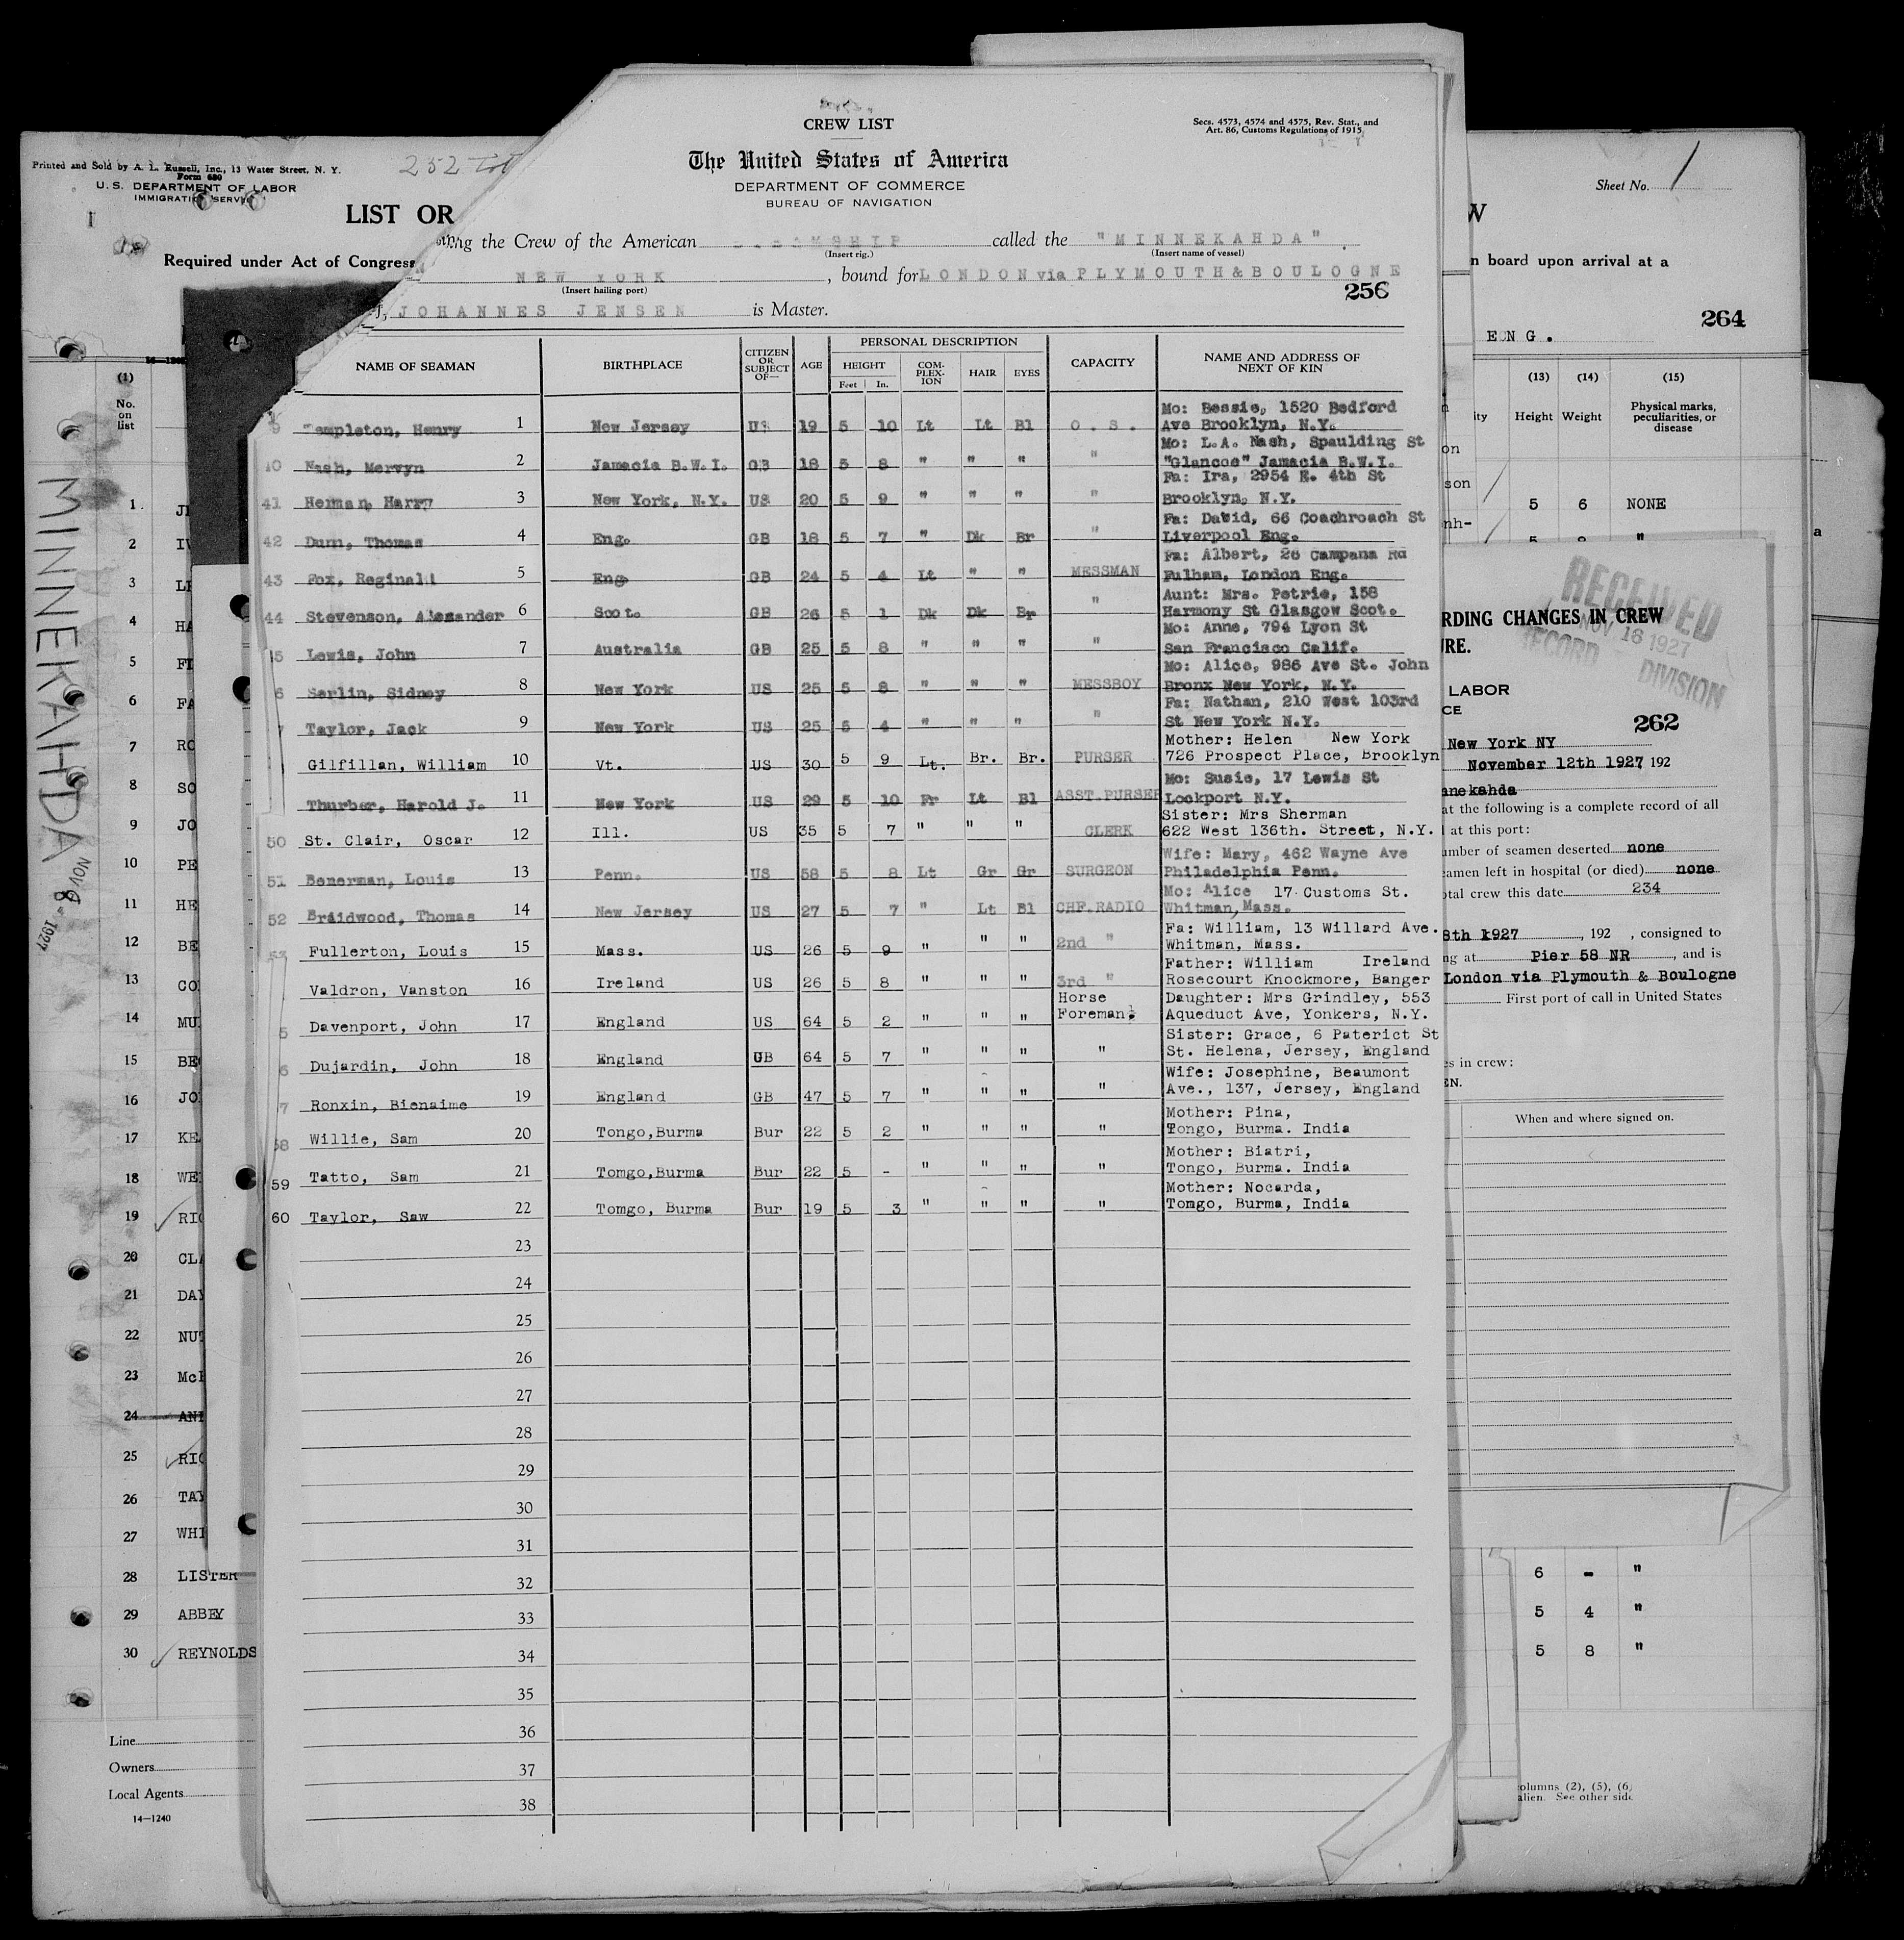 Printed and Sold by A. L. Russell, Inc., 13 Water Street, N. Y.
Form 680
U. S. DEPARTMENT OF LABOR
IMMIGRATION SERVICE
LIST OR
Required under Act of Congress
(1)
No.
on
list
MINNEKAHDA
NOV 8 - 1927
1 JE
2 IV
3 LI
4 HA
5 FI
6 FA
7 RO
8 SO
9 JO
10 PE
11 HE
12 BE
13 CO
14 MU
15 BE
16 JO
17 KE
18 WE
19 RIC
20 CLA
21 DAY
22 NUT
23 McI
24 ANI
25 RIC
26 TAY
27 WHI
28 LISTER
29 ABBEY
30 REYNOLDS
Line
Owners
Local Agents
14—1240
CREW LIST
Secs. 4573, 4574 and 4575, Rev. Stat., and
Art. 86, Customs Regulations of 1915
The United States of America
DEPARTMENT OF COMMERCE
BUREAU OF NAVIGATION
the Crew of the American STEAMSHIP called the "MINNEKAHDA"
(Insert rig.) (Insert name of vessel)
NEW YORK , bound for LONDON via PLYMOUTH & BOULOGNE
(Insert hailing port)
256
JOHANNES JENSEN is Master.
NAME OF SEAMAN BIRTHPLACE CITIZEN OR SUBJECT OF— AGE PERSONAL DESCRIPTION CAPACITY NAME AND ADDRESS OF NEXT OF KIN
HEIGHT COM-PLEX-ION HAIR EYES
Feet In.
Mo: Bessie, 1520 Bedford
Templeton, Henry 1 New Jersey US 19 5 10 Lt Lt Bl O.S. Ave Brooklyn, N.Y.
Mo: L.A. Nash, Spaulding St
40 Nash, Mervyn 2 Jamacia B.W.I. GB 18 5 8 " " " " "Glancoe" Jamacia B.W.I.
Fa: Ira, 2954 E. 4th St
41 Heiman, Harry 3 New York, N.Y. US 20 5 9 " " " " Brooklyn, N.Y.
Fa: David, 66 Coachroach St
42 Dunn, Thomas 4 Eng. GB 18 5 7 " Dk Br " Liverpool Eng.
Fa: Albert, 26 Campana Rd
43 Fox, Reginald 5 Eng. GB 24 5 4 Lt " " MESSMAN Fulham, London Eng.
Aunt: Mrs. Petrie, 158
44 Stevenson, Alexander 6 Scot. GB 26 5 1 Dk Dk Br " Harmony St Glasgow Scot.
Mo: Anne, 794 Lyon St
5 Lewis, John 7 Australia GB 25 5 8 " " " " San Francisco Calif.
Mo: Alice, 986 Ave St. John
6 Serlin, Sidney 8 New York US 25 5 8 " " " MESSBOY Bronx New York, N.Y.
Fa: Nathan, 210 West 103rd
Taylor, Jack 9 New York US 25 5 4 " " " " St New York N.Y.
Mother: Helen New York
Gilfillan, William 10 Vt. US 30 5 9 Lt. Br. Br. PURSER 726 Prospect Place, Brooklyn
Mo: Susie, 17 Lewis St
Thurber, Harold J. 11 New York US 29 5 10 Fr Lt Bl ASST.PURSER Lockport N.Y.
Sister: Mrs Sherman
50 St. Clair, Oscar 12 Ill. US 35 5 7 " " " CLERK 622 West 136th. Street, N.Y.
Wife: Mary, 462 Wayne Ave
51 Benerman, Louis 13 Penn. US 58 5 8 Lt Gr Gr SURGEON Philadelphia Penn.
Mo: Alice 17 Customs St.
52 Braidwood, Thomas 14 New Jersey US 27 5 7 " Lt Bl CHF.RADIO Whitman, Mass.
Fa: William, 13 Willard Ave.
53 Fullerton, Louis 15 Mass. US 26 5 9 " " " 2nd " Whitman, Mass.
Father: William Ireland
Valdron, Vanston 16 Ireland US 26 5 8 " " " 3rd " Rosecourt Knockmore, Banger
Horse Daughter: Mrs Grindley, 553
5 Davenport, John 17 England US 64 5 2 " " " Foreman Aqueduct Ave, Yonkers, N.Y.
Sister: Grace, 6 Paterict St
6 Dujardin, John 18 England GB 64 5 7 " " " " St. Helena, Jersey, England
Wife: Josephine, Beaumont
7 Ronxin, Bienaime 19 England GB 47 5 7 " " " " Ave., 137, Jersey, England
Mother: Pina,
58 Willie, Sam 20 Tongo,Burma Bur 22 5 2 " " " " Tongo, Burma. India
Mother: Biatri,
59 Tatto, Sam 21 Tomgo,Burma Bur 22 5 - " " " " Tongo, Burma. India
Mother: Nocarda,
60 Taylor, Saw 22 Tomgo, Burma Bur 19 5 3 " " " " Tomgo, Burma, India
23
24
25
26
27
28
29
30
31
32
33
34
35
36
37
38
Sheet No. 1
W
n board upon arrival at a
264
ENG.
(13) (14) (15)
ity Height Weight Physical marks, peculiarities, or disease
on
son
5 6 NONE
nh-
RECEIVED
NOV 16 1927
RECORD DIVISION
RDING CHANGES IN CREW
RE.
LABOR
CE
262
New York NY
November 12th 1927 192
nnekahda
at the following is a complete record of all
at this port:
umber of seamen deserted none
eamen left in hospital (or died) none
otal crew this date 234
8th 1927 , 192 , consigned to
ng at Pier 58 NR , and is
London via Plymouth & Boulogne
First port of call in United States
es in crew:
EN.
When and where signed on.
6 - "
5 4 "
5 8 "
columns (2), (5), (6)
alien. See other side